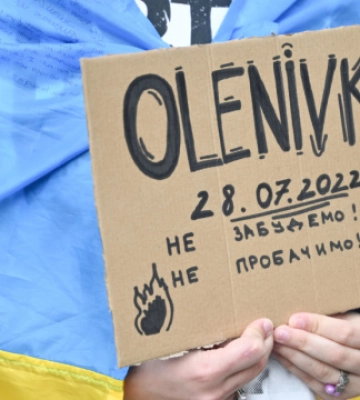 OLENIVK
28.07.2022
НЕ ЗАБУДЕМО!
НЕ ПРОБАЧИМО!